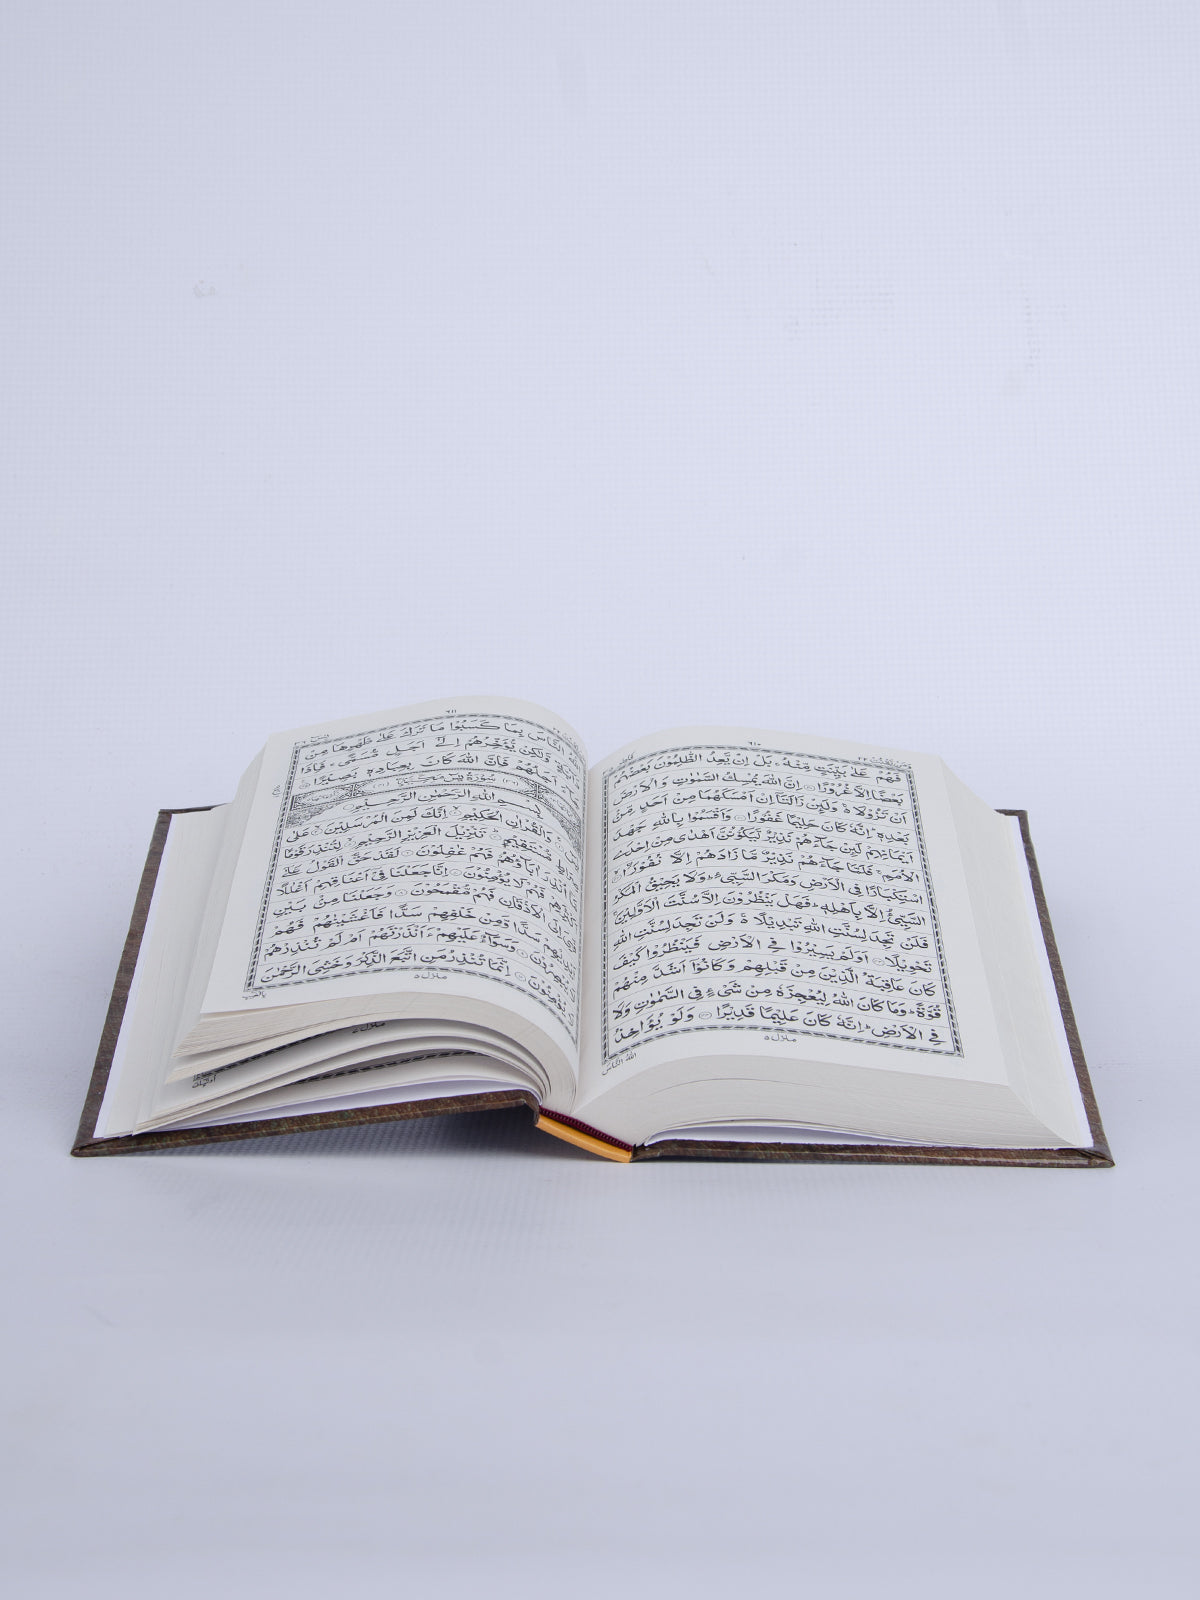 ٦١٠
فَهُمْ عَلٰى بَيِّنَتٍ مِّنْهُ ۚ بَلْ اِنْ يَّعِدُ الظّٰلِمُوْنَ بَعْضُهُمْ
بَعْضًا اِلَّا غُرُوْرًا ۝ اِنَّ اللّٰهَ يُمْسِكُ السَّمٰوٰتِ وَالْاَرْضَ
اَنْ تَزُوْلَا ۚ وَلَئِنْ زَالَتَاۤ اِنْ اَمْسَكَهُمَا مِنْ اَحَدٍ مِّنْۢ
بَعْدِهٖ ؕ اِنَّهٗ كَانَ حَلِيْمًا غَفُوْرًا ۝ وَاَقْسَمُوْا بِاللّٰهِ جَهْدَ
اَيْمَانِهِمْ لَئِنْ جَآءَهُمْ نَذِيْرٌ لَّيَكُوْنُنَّ اَهْدٰى مِنْ اِحْدَى
الْاُمَمِ ۚ فَلَمَّا جَآءَهُمْ نَذِيْرٌ مَّا زَادَهُمْ اِلَّا نُفُوْرًا ۝
اسْتِكْبَارًا فِى الْاَرْضِ وَمَكْرَ السَّيِّئِ ؕ وَلَا يَحِيْقُ الْمَكْرُ
السَّيِّئُ اِلَّا بِاَهْلِهٖ ؕ فَهَلْ يَنْظُرُوْنَ اِلَّا سُنَّتَ الْاَوَّلِيْنَ ۚ
فَلَنْ تَجِدَ لِسُنَّتِ اللّٰهِ تَبْدِيْلًا ۚ وَلَنْ تَجِدَ لِسُنَّتِ اللّٰهِ
تَحْوِيْلًا ۝ اَوَلَمْ يَسِيْرُوْا فِى الْاَرْضِ فَيَنْظُرُوْا كَيْفَ
كَانَ عَاقِبَةُ الَّذِيْنَ مِنْ قَبْلِهِمْ وَكَانُوْۤا اَشَدَّ مِنْهُمْ
قُوَّةً ؕ وَمَا كَانَ اللّٰهُ لِيُعْجِزَهٗ مِنْ شَىْءٍ فِى السَّمٰوٰتِ وَلَا
فِى الْاَرْضِ ؕ اِنَّهٗ كَانَ عَلِيْمًا قَدِيْرًا ۝ وَلَوْ يُؤَاخِذُ
منزل ٥
اللّٰهُ النَّاسَ
٦١١
النَّاسَ بِمَا كَسَبُوْا مَا تَرَكَ عَلٰى ظَهْرِهَا مِنْ
وَّلٰكِنْ يُّؤَخِّرُهُمْ اِلٰٓى اَجَلٍ مُّسَمًّى ۚ فَاِذَا
اَجَلُهُمْ فَاِنَّ اللّٰهَ كَانَ بِعِبَادِهٖ بَصِيْرًا
سُوْرَةُ يٰسٓ مَكِّيَّةٌ
بِسْمِ اللّٰهِ الرَّحْمٰنِ الرَّحِيْمِ
وَالْقُرْاٰنِ الْحَكِيْمِ ۝ اِنَّكَ لَمِنَ الْمُرْسَلِيْنَ ۝ عَلٰى
مُّسْتَقِيْمٍ ۝ تَنْزِيْلَ الْعَزِيْزِ الرَّحِيْمِ ۝ لِتُنْذِرَ قَوْمًا
اُنْذِرَ اٰبَآؤُهُمْ فَهُمْ غٰفِلُوْنَ ۝ لَقَدْ حَقَّ الْقَوْلُ عَلٰٓى
فَهُمْ لَا يُؤْمِنُوْنَ ۝ اِنَّا جَعَلْنَا فِىْۤ اَعْنَاقِهِمْ اَغْلٰلًا
اِلَى الْاَذْقَانِ فَهُمْ مُّقْمَحُوْنَ ۝ وَجَعَلْنَا مِنْۢ بَيْنِ
سَدًّا وَّمِنْ خَلْفِهِمْ سَدًّا فَاَغْشَيْنٰهُمْ فَهُمْ
وَسَوَآءٌ عَلَيْهِمْ ءَاَنْذَرْتَهُمْ اَمْ لَمْ تُنْذِرْهُمْ
اِنَّمَا تُنْذِرُ مَنِ اتَّبَعَ الذِّكْرَ وَخَشِىَ الرَّحْمٰنَ
منزل ٥
بِالْغَيْبِ